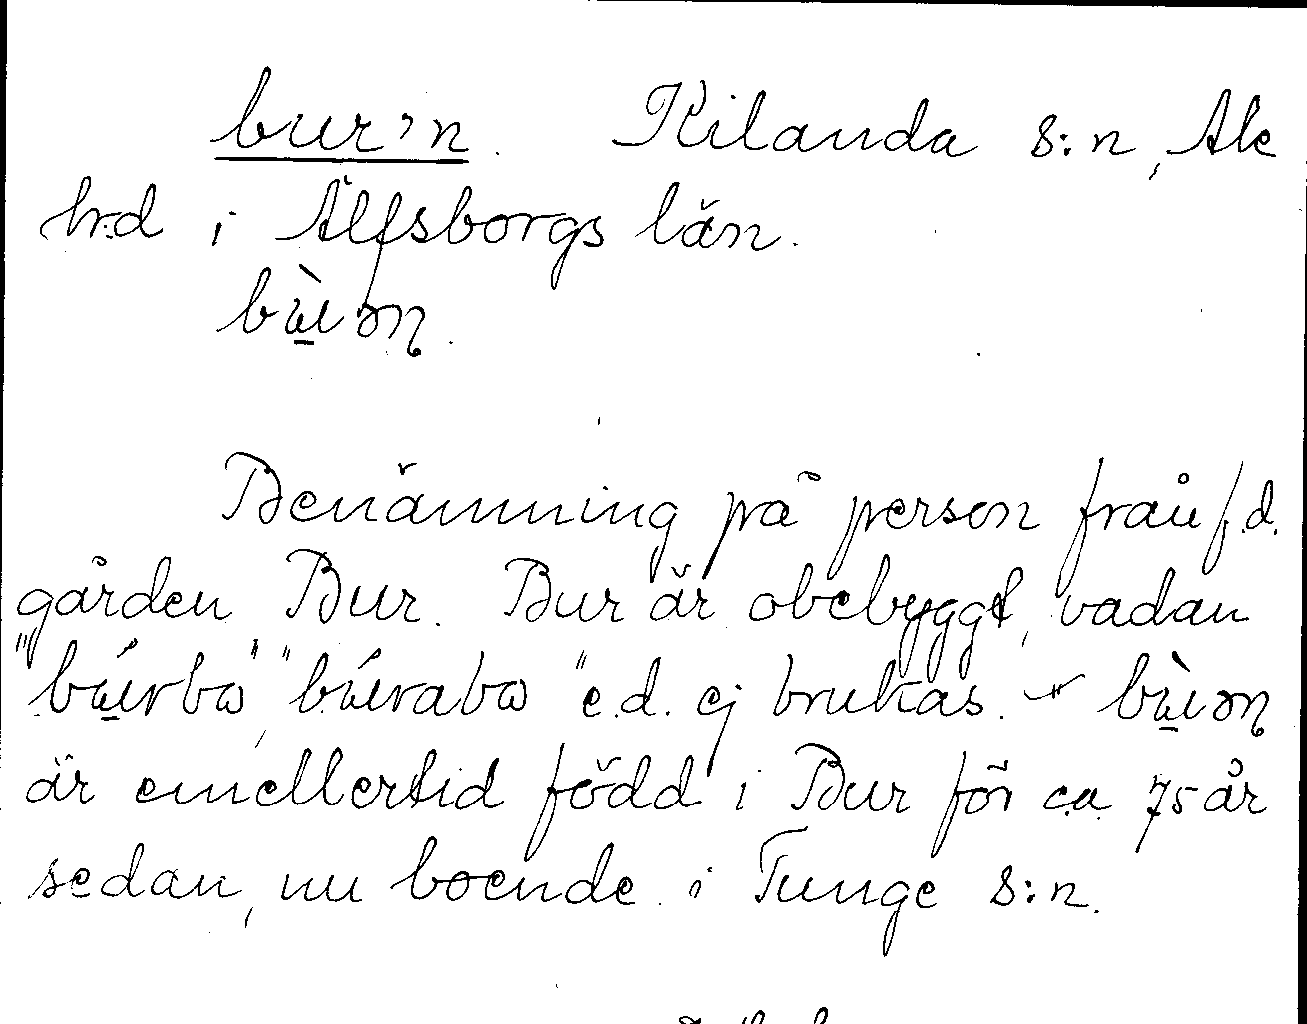 bur'n. Kilanda s:n, Ale
hrd i Älfsborgs län.
Benämning på person från f.d.
gården Bur. Bur är obebyggt, vadan
e.d. ej brukas.
är emellertid född i Bur för ca 75 år
sedan, nu boende i Tunge s:n.